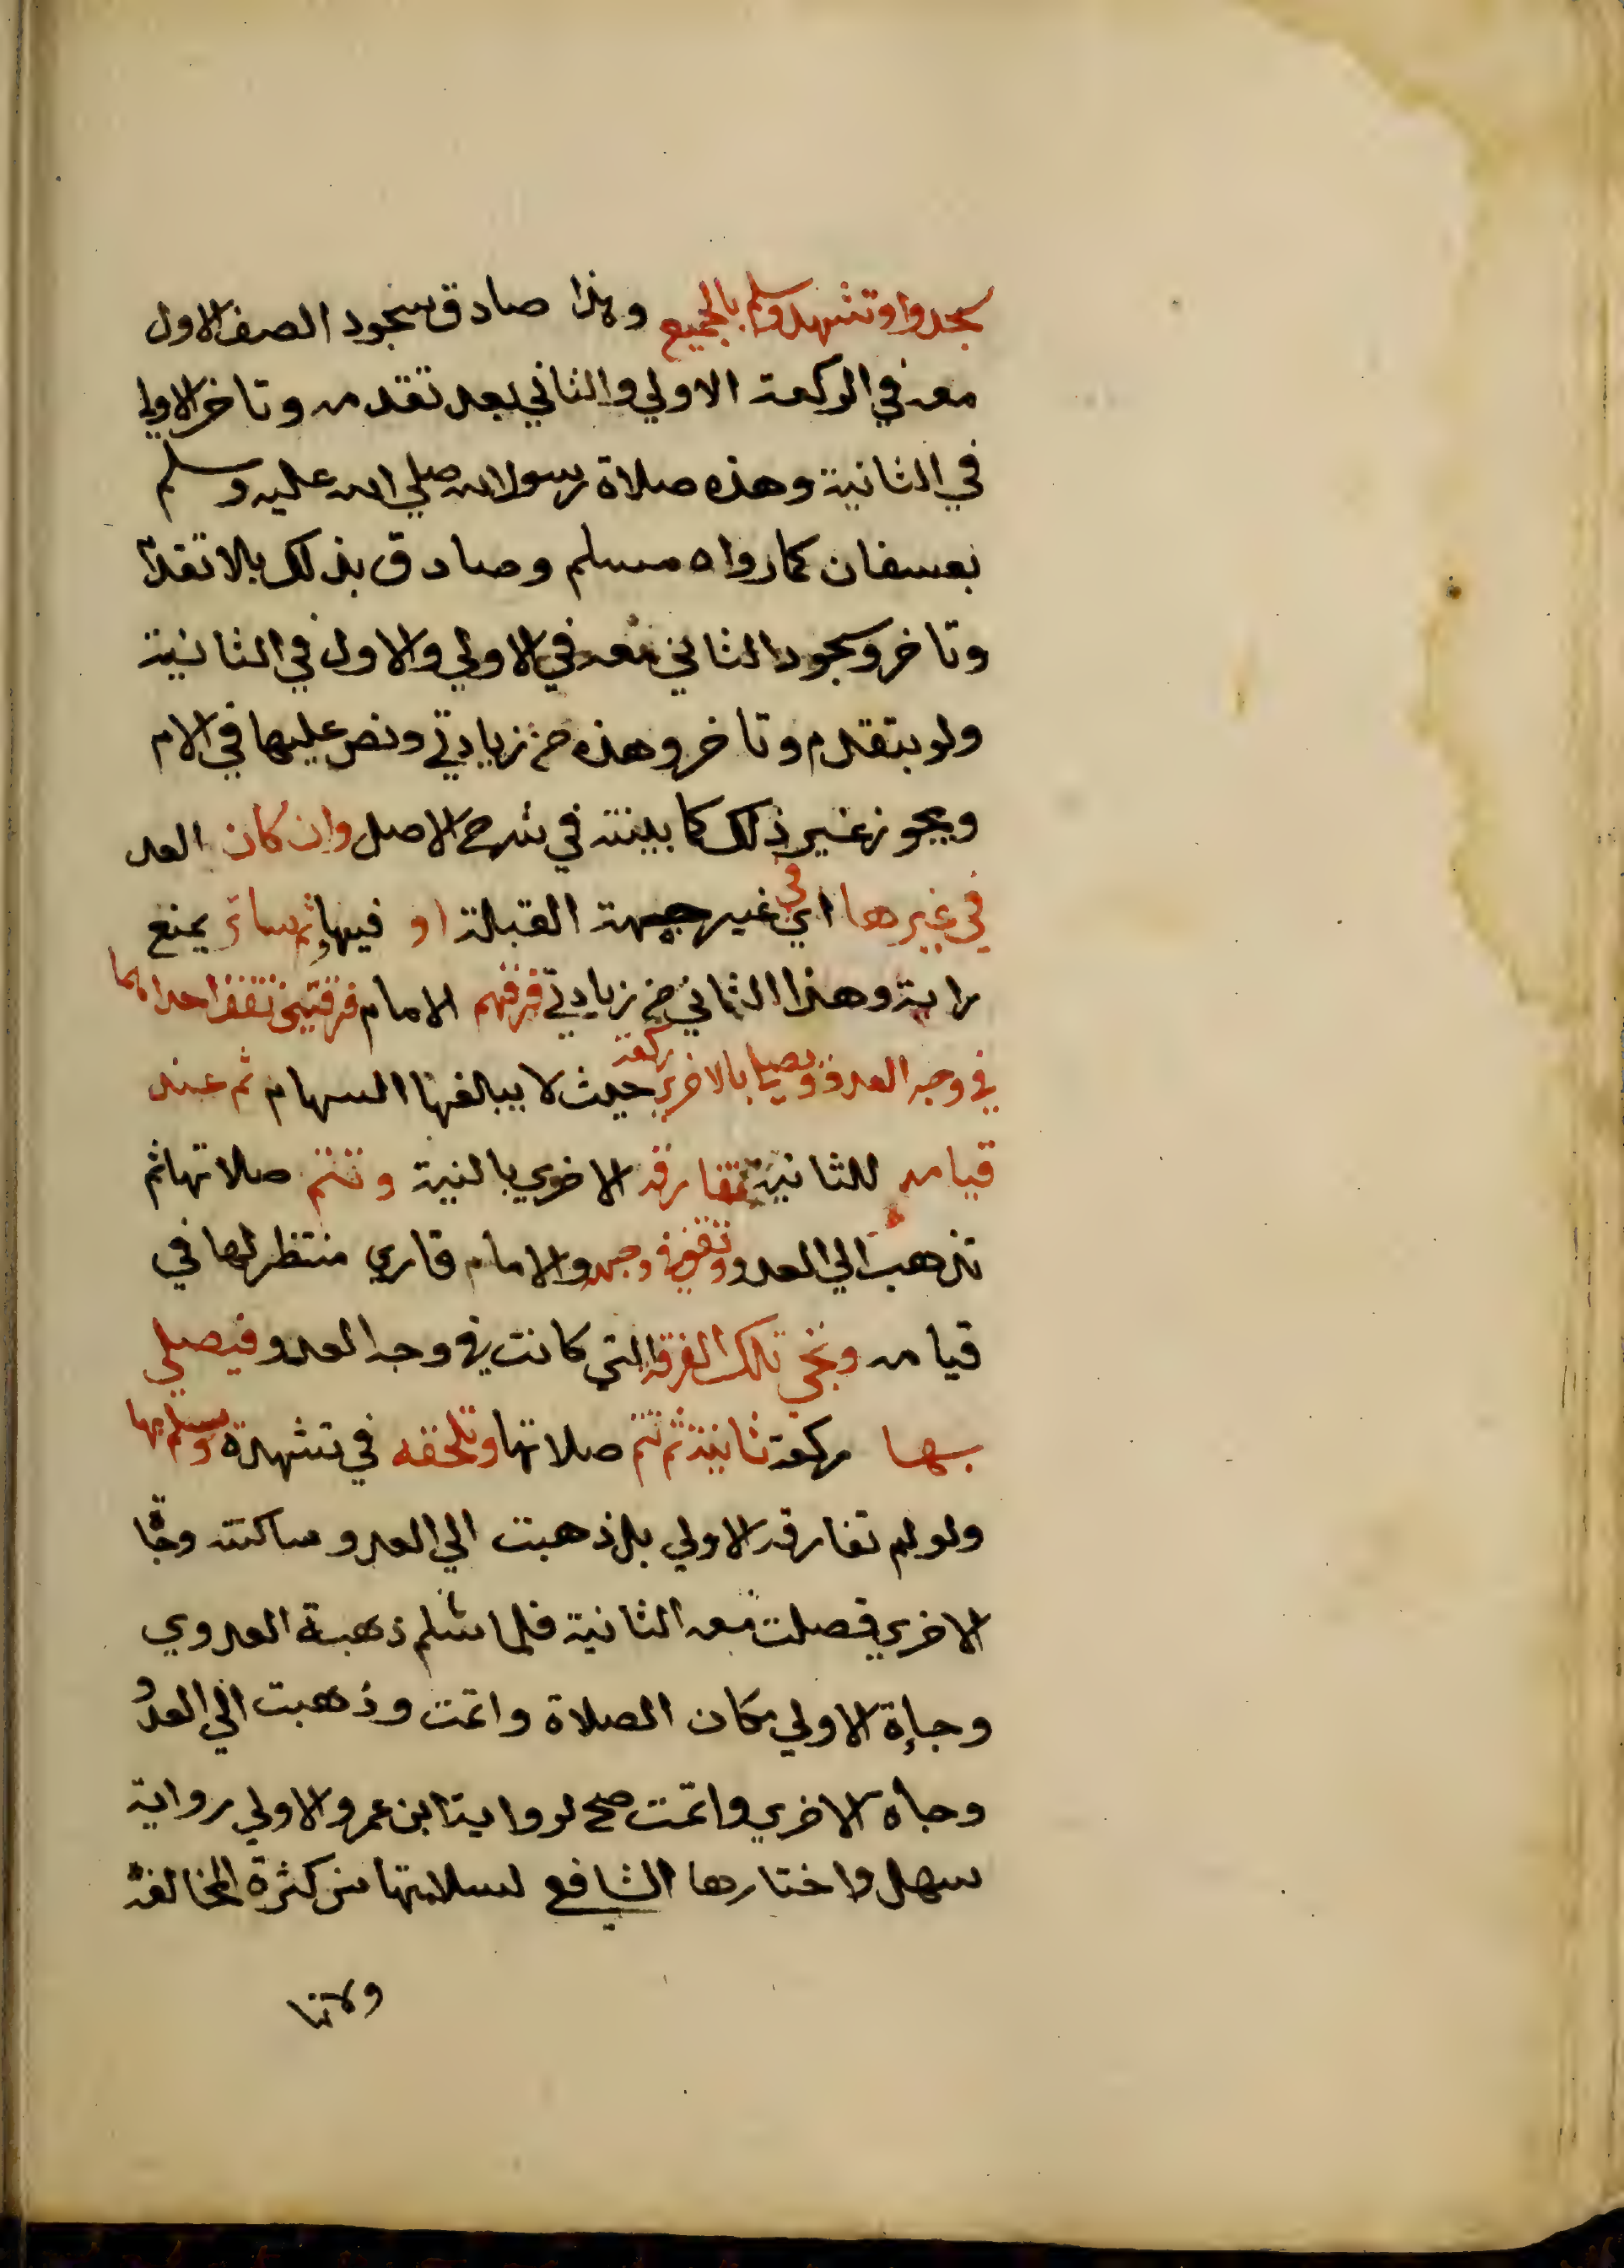 سجدوا وتشهد وسلم بالجميع وهذا صادق بسجود الصف الاول
معه في الركعة الاولي والثاني بعد تقدمه وتاخر الاول
في الثانية وهذه صلاة رسول الله صلي الله عليه وسلم
بعسفان كما رواه مسلم وصادق بذلك بلا تقدم
وتاخر وسجود الثاني معه في الاولي والاول في الثانية
ولو بتقدم وتاخر وهذه من زيادتي ونص عليها في الام
ويجوز غير ذلك كما بينته في شرح الاصل وان كان العد
في غيرها اي في غير جهة القبلة او فيها وثم ساتر يمنع
رايته وهذا الثاني من زيادتي فرقهم الامام فرقتين تقف احداهما
في وجه العدو ويصلي بالاخري ركعة حيث لا يبالغها السهام ثم عند
قيامه للثانية تفارقه الاخري بالنية وتتم صلاتها ثم
تذهب الي العدو وتقف في وجهه والامام قاري منتظر لها في
قيامه وتجي تلك الفرقة التي كانت في وجه العدو فيصلي
بها ركعة ثانية ثم تتم صلاتها وتلحقه في تشهده وسلم بها
ولو لم تفارقه الاولي بل ذهبت الي العدو ساكتة وجا
الاخري فصلت معه الثانية فلما سلم ذهبة العدوي
وجاءة الاولي مكان الصلاة واتمت وذهبت الي العدو
وجاه الاخري واتمت صح لرواية ابن عمر والاولي رواية
سهل واختارها الشافع لسلامتها من كثرة المخالفة
ولانها